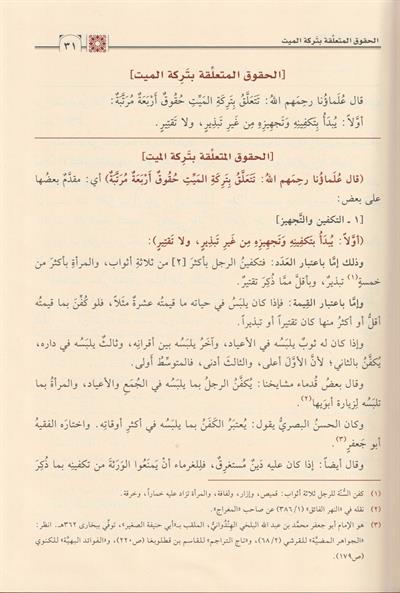 الحقوق المتعلّقة بتركة الميت
٣١
[الحقوق المتعلّقة بتَرِكة الميت]
قال عُلَماؤُنا رحِمَهم اللهُ: تَتَعَلَّقُ بِتَرِكَةِ المَيِّتِ حُقُوقٌ أَرْبَعَةٌ مُرَتَّبَةٌ:
أوَّلاً: يُبدَأُ بِتَكفِينِهِ وَتَجهِيزِهِ مِن غَيرِ تَبذِيرٍ، ولا تَقتِيرٍ.
[الحقوق المتعلّقة بتَرِكة الميت]
(قال عُلَماؤُنا رحِمَهم اللهُ: تَتَعَلَّقُ بِتَرِكَةِ المَيِّتِ حُقُوقٌ أَرْبَعَةٌ مُرَتَّبَةٌ) أي: مقدَّمٌ بعضُها
على بعض:
[١ ـ التكفين والتَّجهيز]
(أوَّلاً: يُبدَأُ بِتَكفِينِهِ وَتَجهِيزِهِ مِن غَيرِ تَبذِيرٍ، ولا تَقتِيرٍ):
وذلك إمَّا باعتبار العَدَد: فتكفينُ الرجل بأكثرَ [٢] من ثلاثةِ أثواب، والمرأةِ بأكثرَ من
خمسةٍ(١) تبذيرٌ، وبأقلَّ ممَّا ذُكِرَ تقتيرٌ.
وإمَّا باعتبار القِيمة: فإذا كان يلبَسُ في حياته ما قيمتُه عشرةٌ مثَلاً، فلو كُفِّنَ بما قيمتُه
أقلُّ أو أكثرُ منها كان تقتيراً أو تبذيراً.
وإذا كان له ثوبٌ يلبَسُه في الأعياد، وآخَرُ يلبَسُه بين أقرانِه، وثالثٌ يلبَسُه في داره،
يُكفَّنُ بالثاني؛ لأنَّ الأوَّلَ أعلى، والثالثَ أدنى، فالمتوسِّطُ أَولى.
وقال بعضُ قُدماء مشايخنا: يُكفَّنُ الرجلُ بما يلبَسُه في الجُمَع والأعياد، والمرأةُ بما
تلبَسُه لِزيارة أبوَيها(٢).
وكان الحسنُ البصريُّ يقول: يُعتبَرُ الكَفَنُ بما يلبَسُه في أكثرِ أوقاتِه. واختارَه الفقيهُ
أبو جَعفرٍ(٣).
وقال أيضاً: إذا كان عليه دَينٌ مُستغرِقٌ، فلِلغرماء أنْ يَمنَعُوا الوَرَثةَ من تكفينِه بما ذُكِرَ
(١) كفن السُّنّة للرجل ثلاثة أثواب: قميص، وإزار، ولفافة، والمرأة تزاد عليه خماراً، وخرقة.
(٢) نقله في «النهر الفائق» (٣٨٦/١) عن صاحب «المعراج».
(٣) هو الإمام أبو جعفر محمَّد بن عبد الله البلخي الهِنْدُوَانيُّ، الملقب بـ«أبي حنيفة الصغير»، توفِّي ببخارى ٣٦٢هـ. انظر:
«الجواهر المضيَّة» للقرشي (٦٨/٢)، و«تاج التراجم» لقاسم بن قطلوبغا (ص٢٢٠)، و«الفوائد البهيَّة» للكنوي
(ص١٧٩).